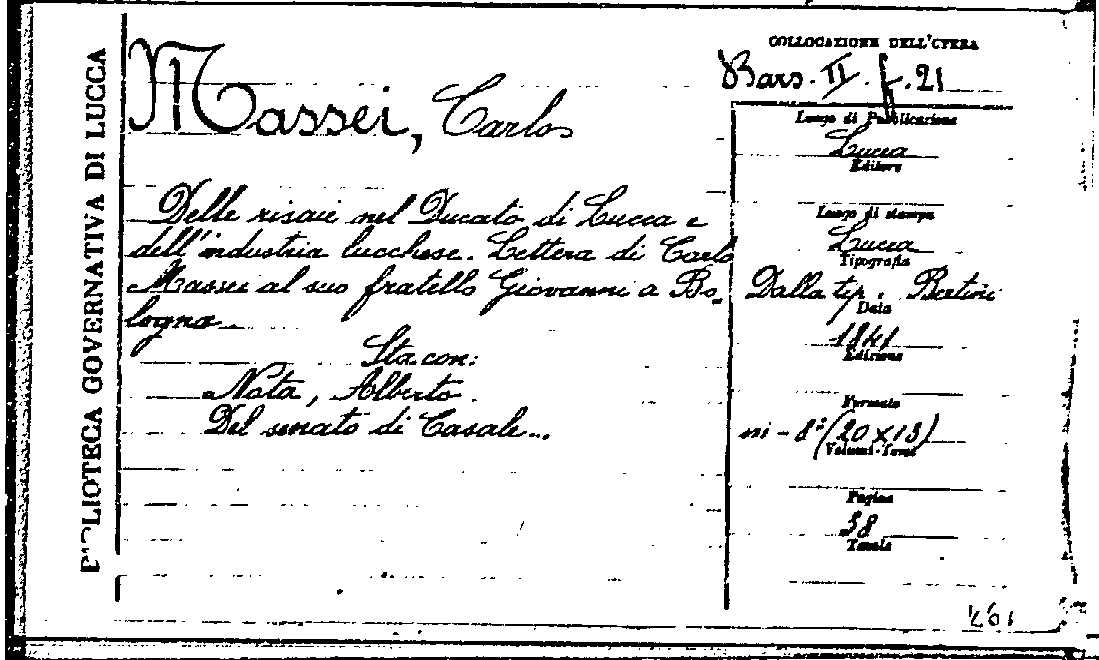 BIBLIOTECA GOVERNATIVA DI LUCCA
Massei, Carlo
Delle risaie nel Ducato di Lucca e
dell'industria lucchese. Lettera di Carlo
Massei al suo fratello Giovanni a Bo-
logna.
Sta con:
Nota, Alberto.
Del senato di Casale...
COLLOCAZIONE DELL'OPERA
Bars. II. f. 21
Luogo di Pubblicazione
Lucca
Editore
Luogo di stampa
Lucca
Tipografia
Dalla tip. Bertini
Data
1841
Edizione
Formato
in-8° (20x13)
Volumi-Tomi
Pagine
38
Tavole